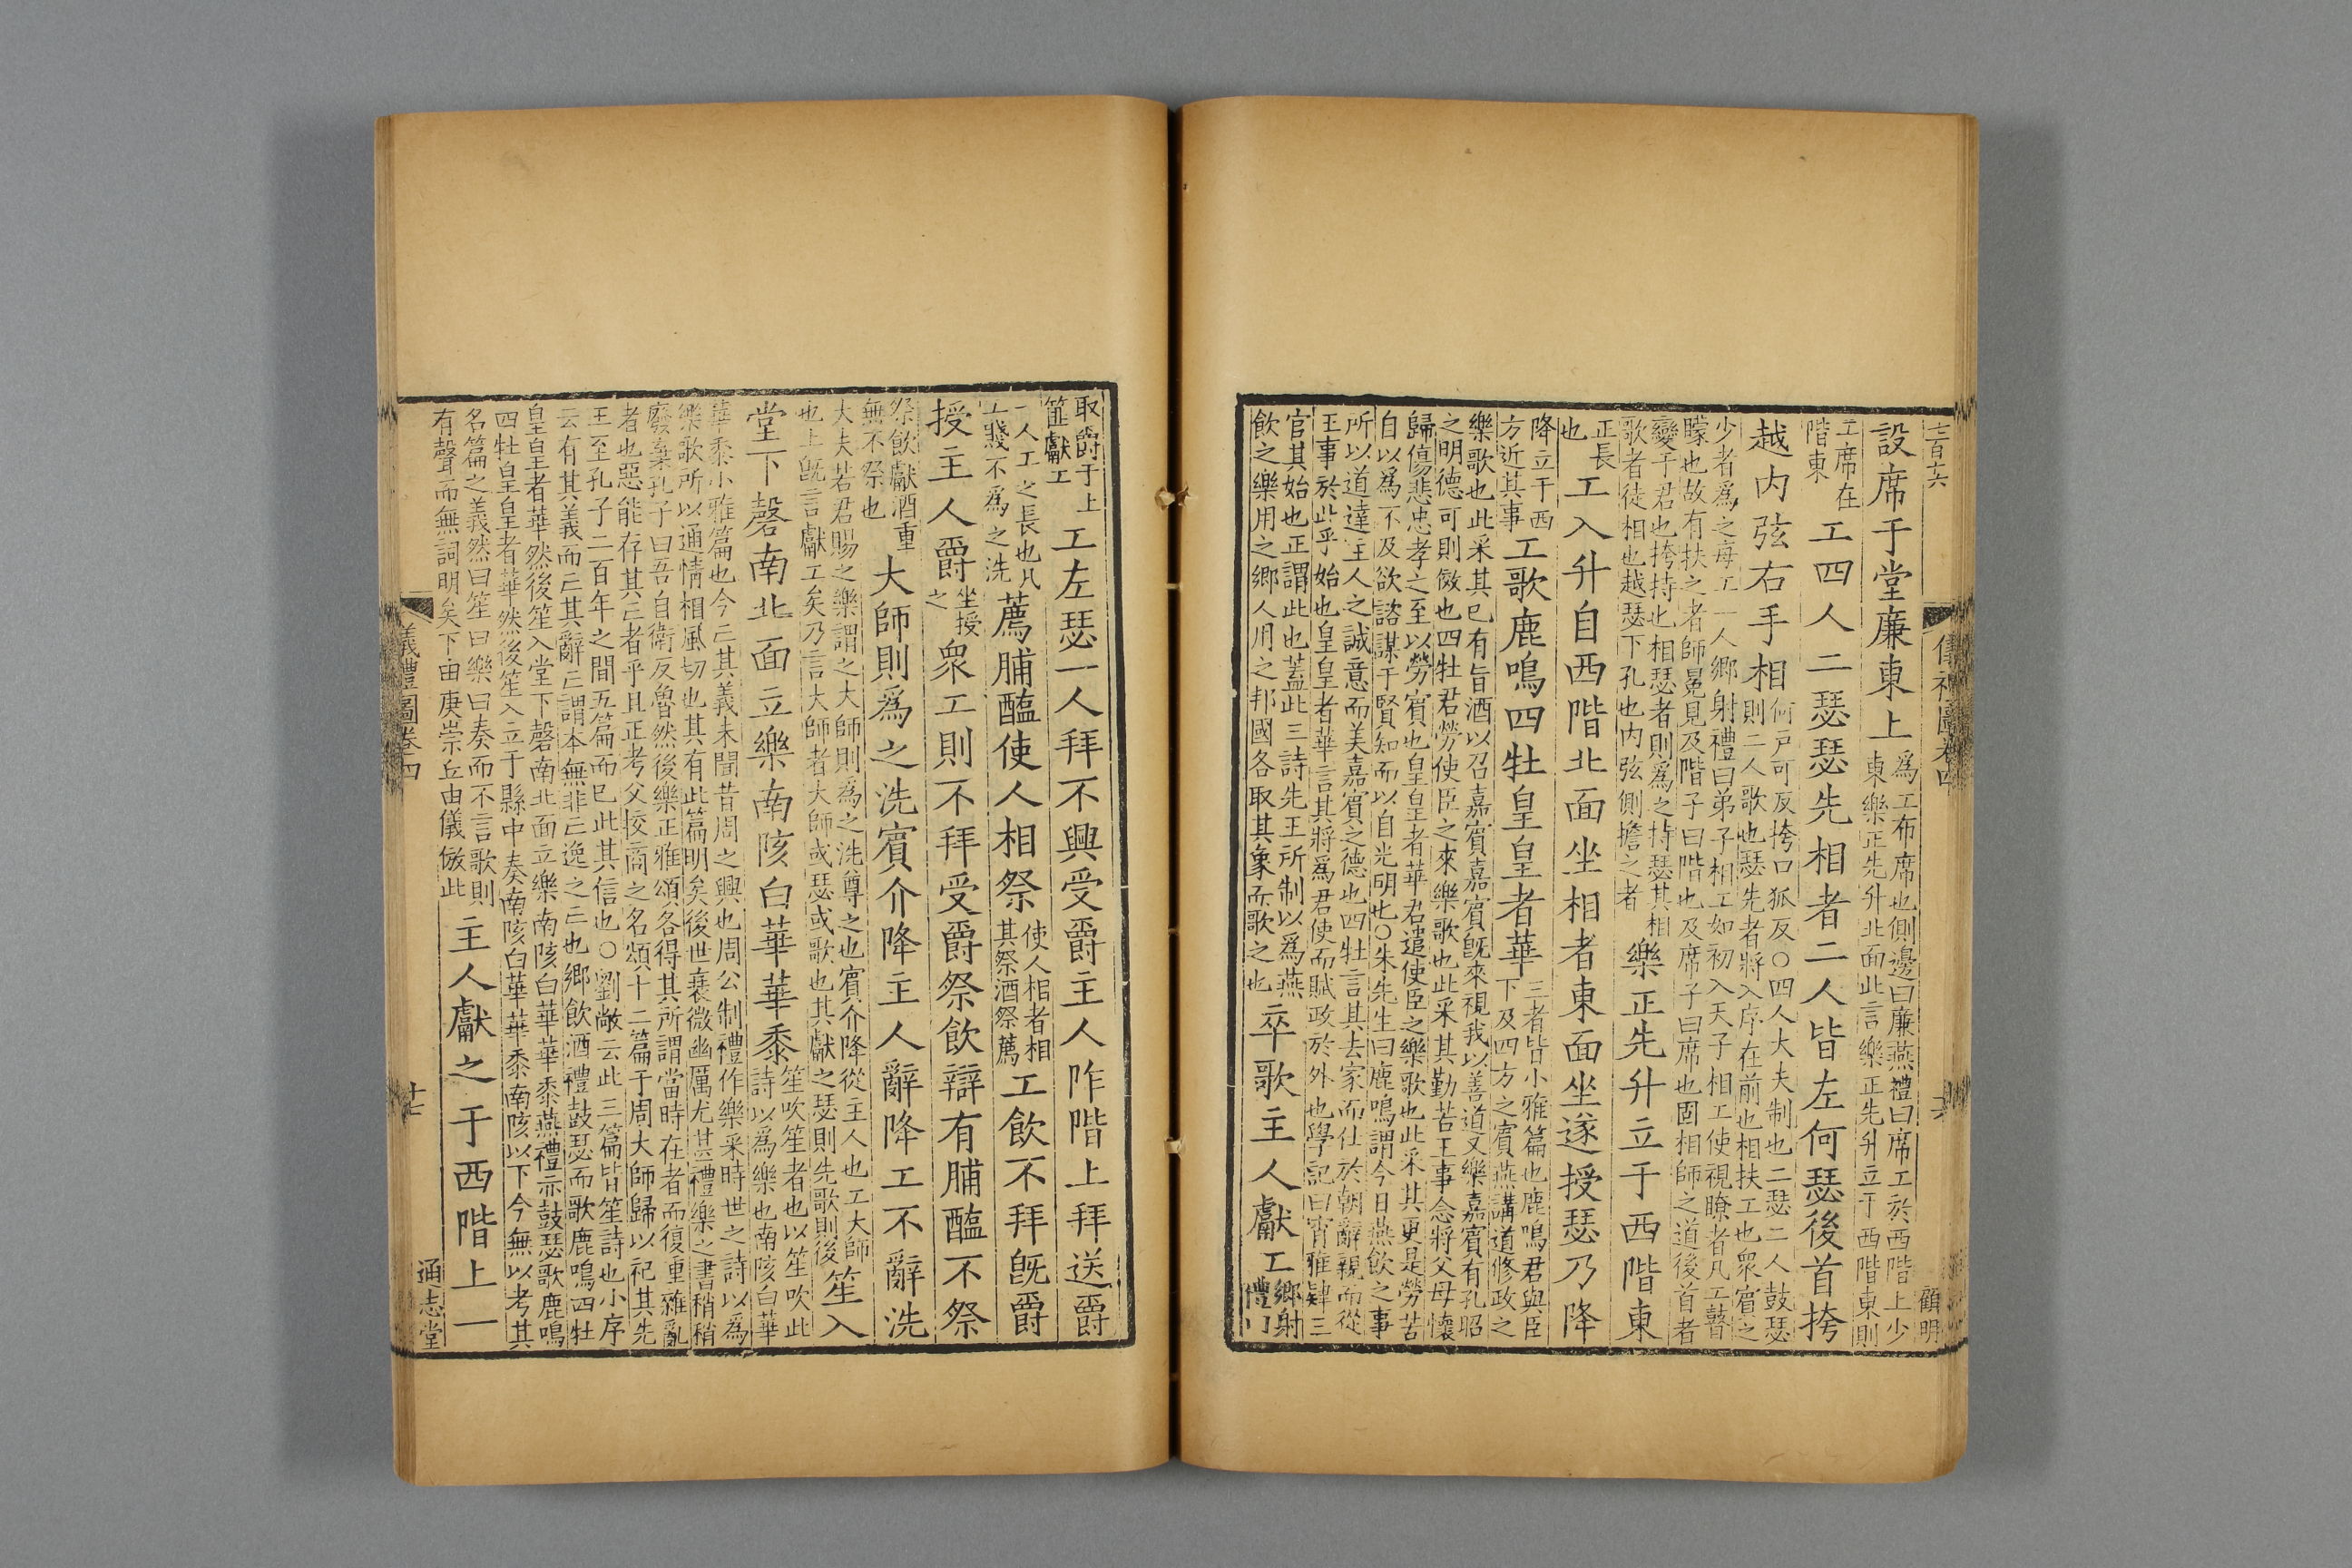 七百六
儀禮圖卷四
顧明
設席于堂廉東上爲工布席也側邊曰廉燕禮曰席工於西階上少
東樂正先升北面此言樂正先升立于西階東則
工席在
階東
工四人二瑟瑟先相者二人皆左何瑟後首挎
越内弦右手相何戸可反挎口狐反○四人大夫制也二瑟二人鼓瑟
則二人歌也瑟先者將入序在前也相扶工也衆賓之
少者爲之每工一人鄉射禮曰弟子相工如初入天子相工使視瞭者凡工瞽
矇也故有扶之者師冕見及階子曰階也及席子曰席也固相師之道後首者
變于君也挎持也相瑟者則爲之持瑟其相
歌者徒相也越瑟下孔也内弦側擔之者
樂正先升立于西階東
正長
也
工入升自西階北面坐相者東面坐遂授瑟乃降
降立于西
方近其事
工歌鹿鳴四牡皇皇者華三者皆小雅篇也鹿鳴君與臣
下及四方之賓燕講道修政之
樂歌也此采其已有旨酒以召嘉賓嘉賓旣來視我以善道又樂嘉賓有孔昭
之明德可則傚也四牡君勞使臣之來樂歌也此采其勤苦王事念將父母懷
歸傷悲忠孝之至以勞賓也皇皇者華君遣使臣之樂歌也此采其更是勞苦
自以爲不及欲諮謀于賢知而以自光明也○朱先生曰鹿鳴謂今日燕飲之事
所以道達主人之誠意而美嘉賓之德也四牡言其去家而仕於朝辭親而從
王事於此乎始也皇皇者華言其將爲君使而賦政於外也學記曰宵雅肄三
官其始也正謂此也蓋此三詩先王所制以爲燕
飲之樂用之鄉人用之邦國各取其象而歌之也
卒歌主人獻工鄉射
禮曰
取爵于上
篚獻工
工左瑟一人拜不興受爵主人阼階上拜送爵
一人工之長也凡
工賤不爲之洗
薦脯醢使人相祭使人相者相
其祭酒祭薦
工飲不拜旣爵
授主人爵坐授
之
衆工則不拜受爵祭飲辯有脯醢不祭
祭飲獻酒重
無不祭也
大師則爲之洗賓介降主人辭降工不辭洗
大夫若君賜之樂謂之大師則爲之洗尊之也賓介降從主人也工大師
也上旣言獻工矣乃言大師者大師或瑟或歌也其獻之瑟則先歌則後
笙入
堂下磬南北面立樂南陔白華華黍笙吹笙者也以笙吹此
詩以爲樂也南陔白華
華黍小雅篇也今亡其義未聞昔周之興也周公制禮作樂采時世之詩以爲
樂歌所以通情相風切也其有此篇明矣後世衰微幽厲尤甚禮樂之書稍稍
廢棄孔子曰吾自衛反魯然後樂正雅頌各得其所謂當時在者而復重雜亂
者也惡能存其亡者乎且正考父挍商之名頌十二篇于周大師歸以祀其先
王至孔子二百年之間五篇而已此其信也○劉敞云此三篇皆笙詩也小序
云有其義而亡其辭亡謂本無非亡逸之亡也鄉飲酒禮鼓瑟而歌鹿鳴四牡
皇皇者華然後笙入堂下磬南北面立樂南陔白華華黍燕禮亦鼓瑟歌鹿鳴
四牡皇皇者華然後笙入立于縣中奏南陔白華華黍南陔以下今無以考其
名篇之義然曰笙曰樂曰奏而不言歌則
有聲而無詞明矣下由庚崇丘由儀倣此
主人獻之于西階上一
儀禮圖卷四
十七
通志堂